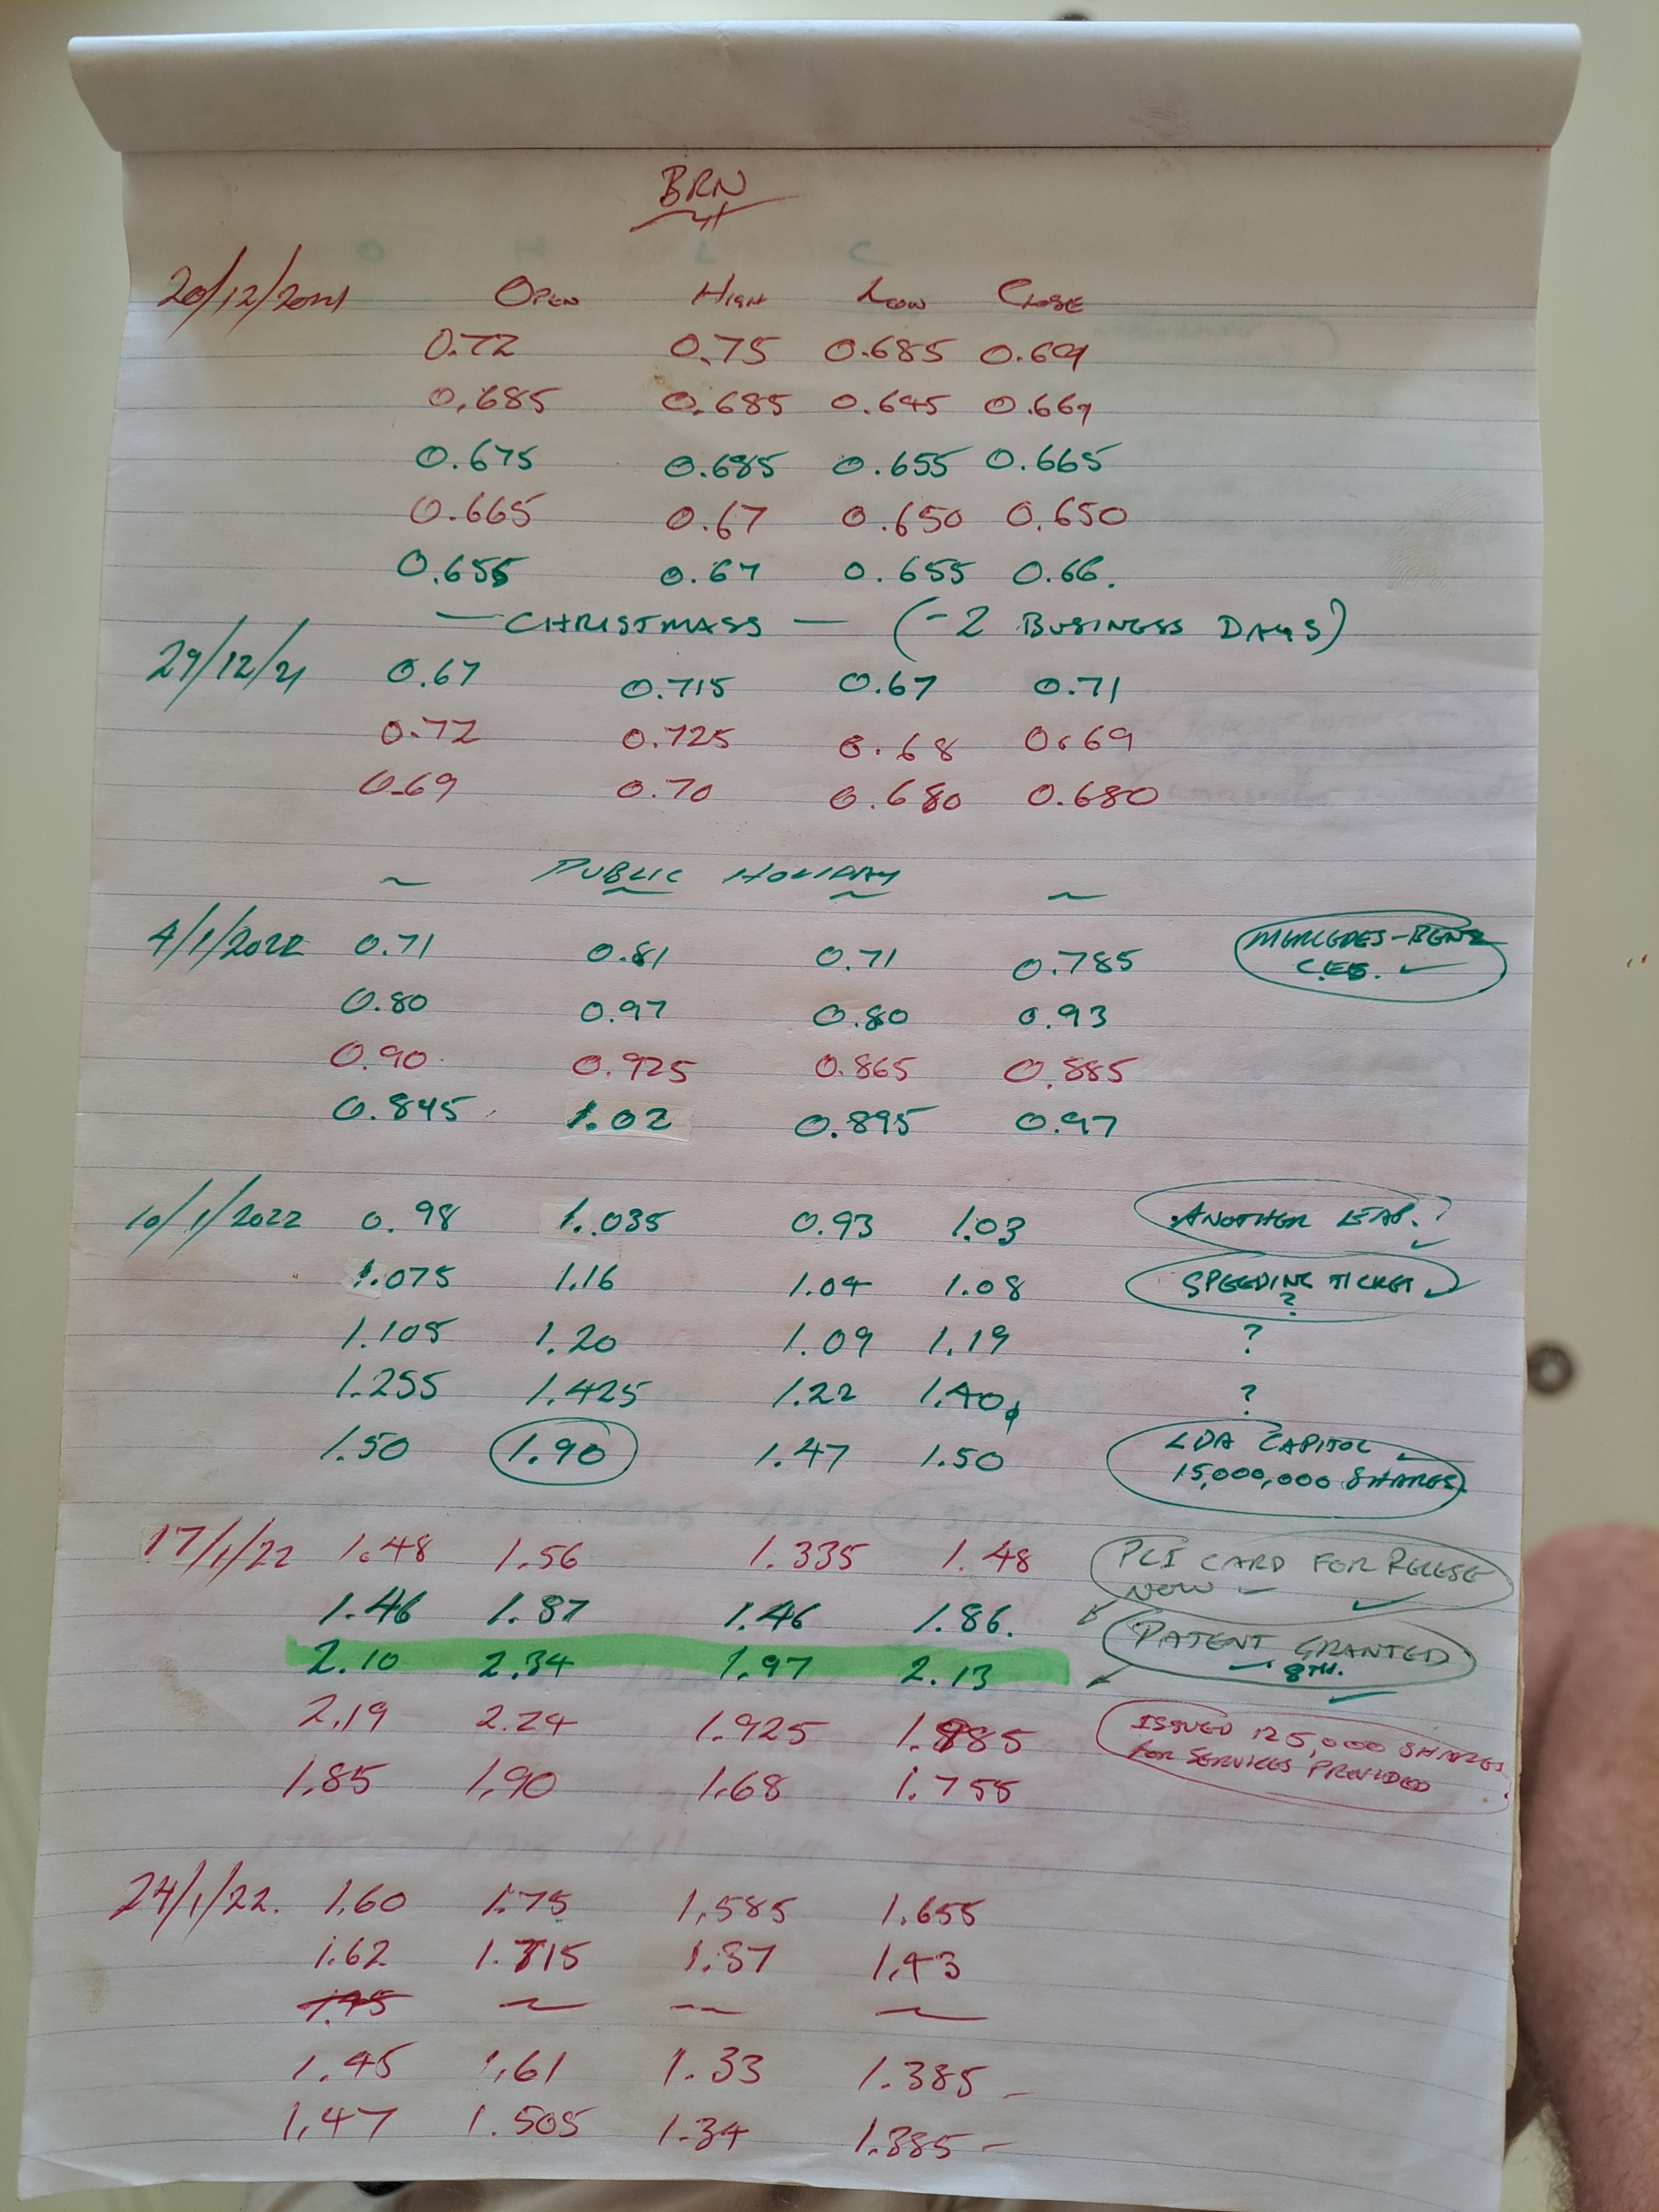 BRN
20/12/2021 OPEN HIGH LOW CLOSE
0.72 0.75 0.685 0.69
0.685 0.685 0.645 0.669
0.675 0.685 0.655 0.665
0.665 0.67 0.650 0.650
0.655 0.67 0.655 0.66.
— CHRISTMASS — (-2 BUSINESS DAYS)
29/12/21 0.67 0.715 0.67 0.71
0.72 0.725 0.68 0.69
0.69 0.70 0.680 0.680
~ PUBLIC HOLIDAY ~
4/1/2022 0.71 0.81 0.71 0.785 MERCEDES-BENZ
CES. ✓
0.80 0.97 0.80 0.93
0.90 0.925 0.865 0.885
0.845 1.02 0.895 0.97
10/1/2022 0.98 1.035 0.93 1.03 ANOTHER LEAP.? ✓
1.075 1.16 1.04 1.08 SPEEDING TICKET ✓
?
1.105 1.20 1.09 1.19 ?
1.255 1.425 1.22 1.40 ?
1.50 1.90 1.47 1.50 LDA CAPITOL ✓
15,000,000 SHARES
17/1/22 1.48 1.56 1.335 1.48 PCI CARD FOR RELESE
NOW ✓
1.46 1.87 1.46 1.86.
2.10 2.34 1.97 2.13 PATENT GRANTED
✓ 8TH.
2.19 2.24 1.925 1.985 ISSUED 125,000 SHARES
FOR SERVICES PROVIDED
1.85 1.90 1.68 1.755
24/1/22. 1.60 1.75 1.585 1.655
1.62 1.715 1.37 1.43
1.45 ~ ~ ~
1.45 1.61 1.33 1.385 –
1.47 1.505 1.34 1.385 –